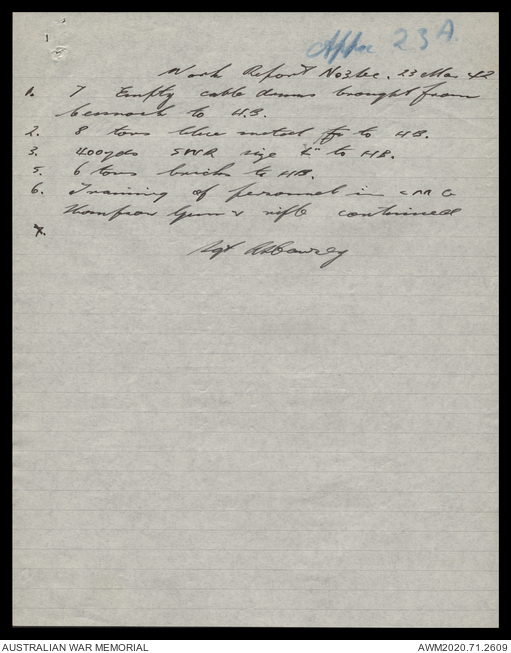 1
Appx 23A
Work Report No3 Sec. 23 Mar 42
1. 7 Empty cable drums brought from
to H.B.
2. 8 tons blue metal to HB.
3. 400yds SWR size to HB.
5. 6 tons bricks to HB.
6. Training of personnel in LMG
Thompson Gun & rifle continued
7.
Sgt
AUSTRALIAN WAR MEMORIAL
AWM2020.71.2609